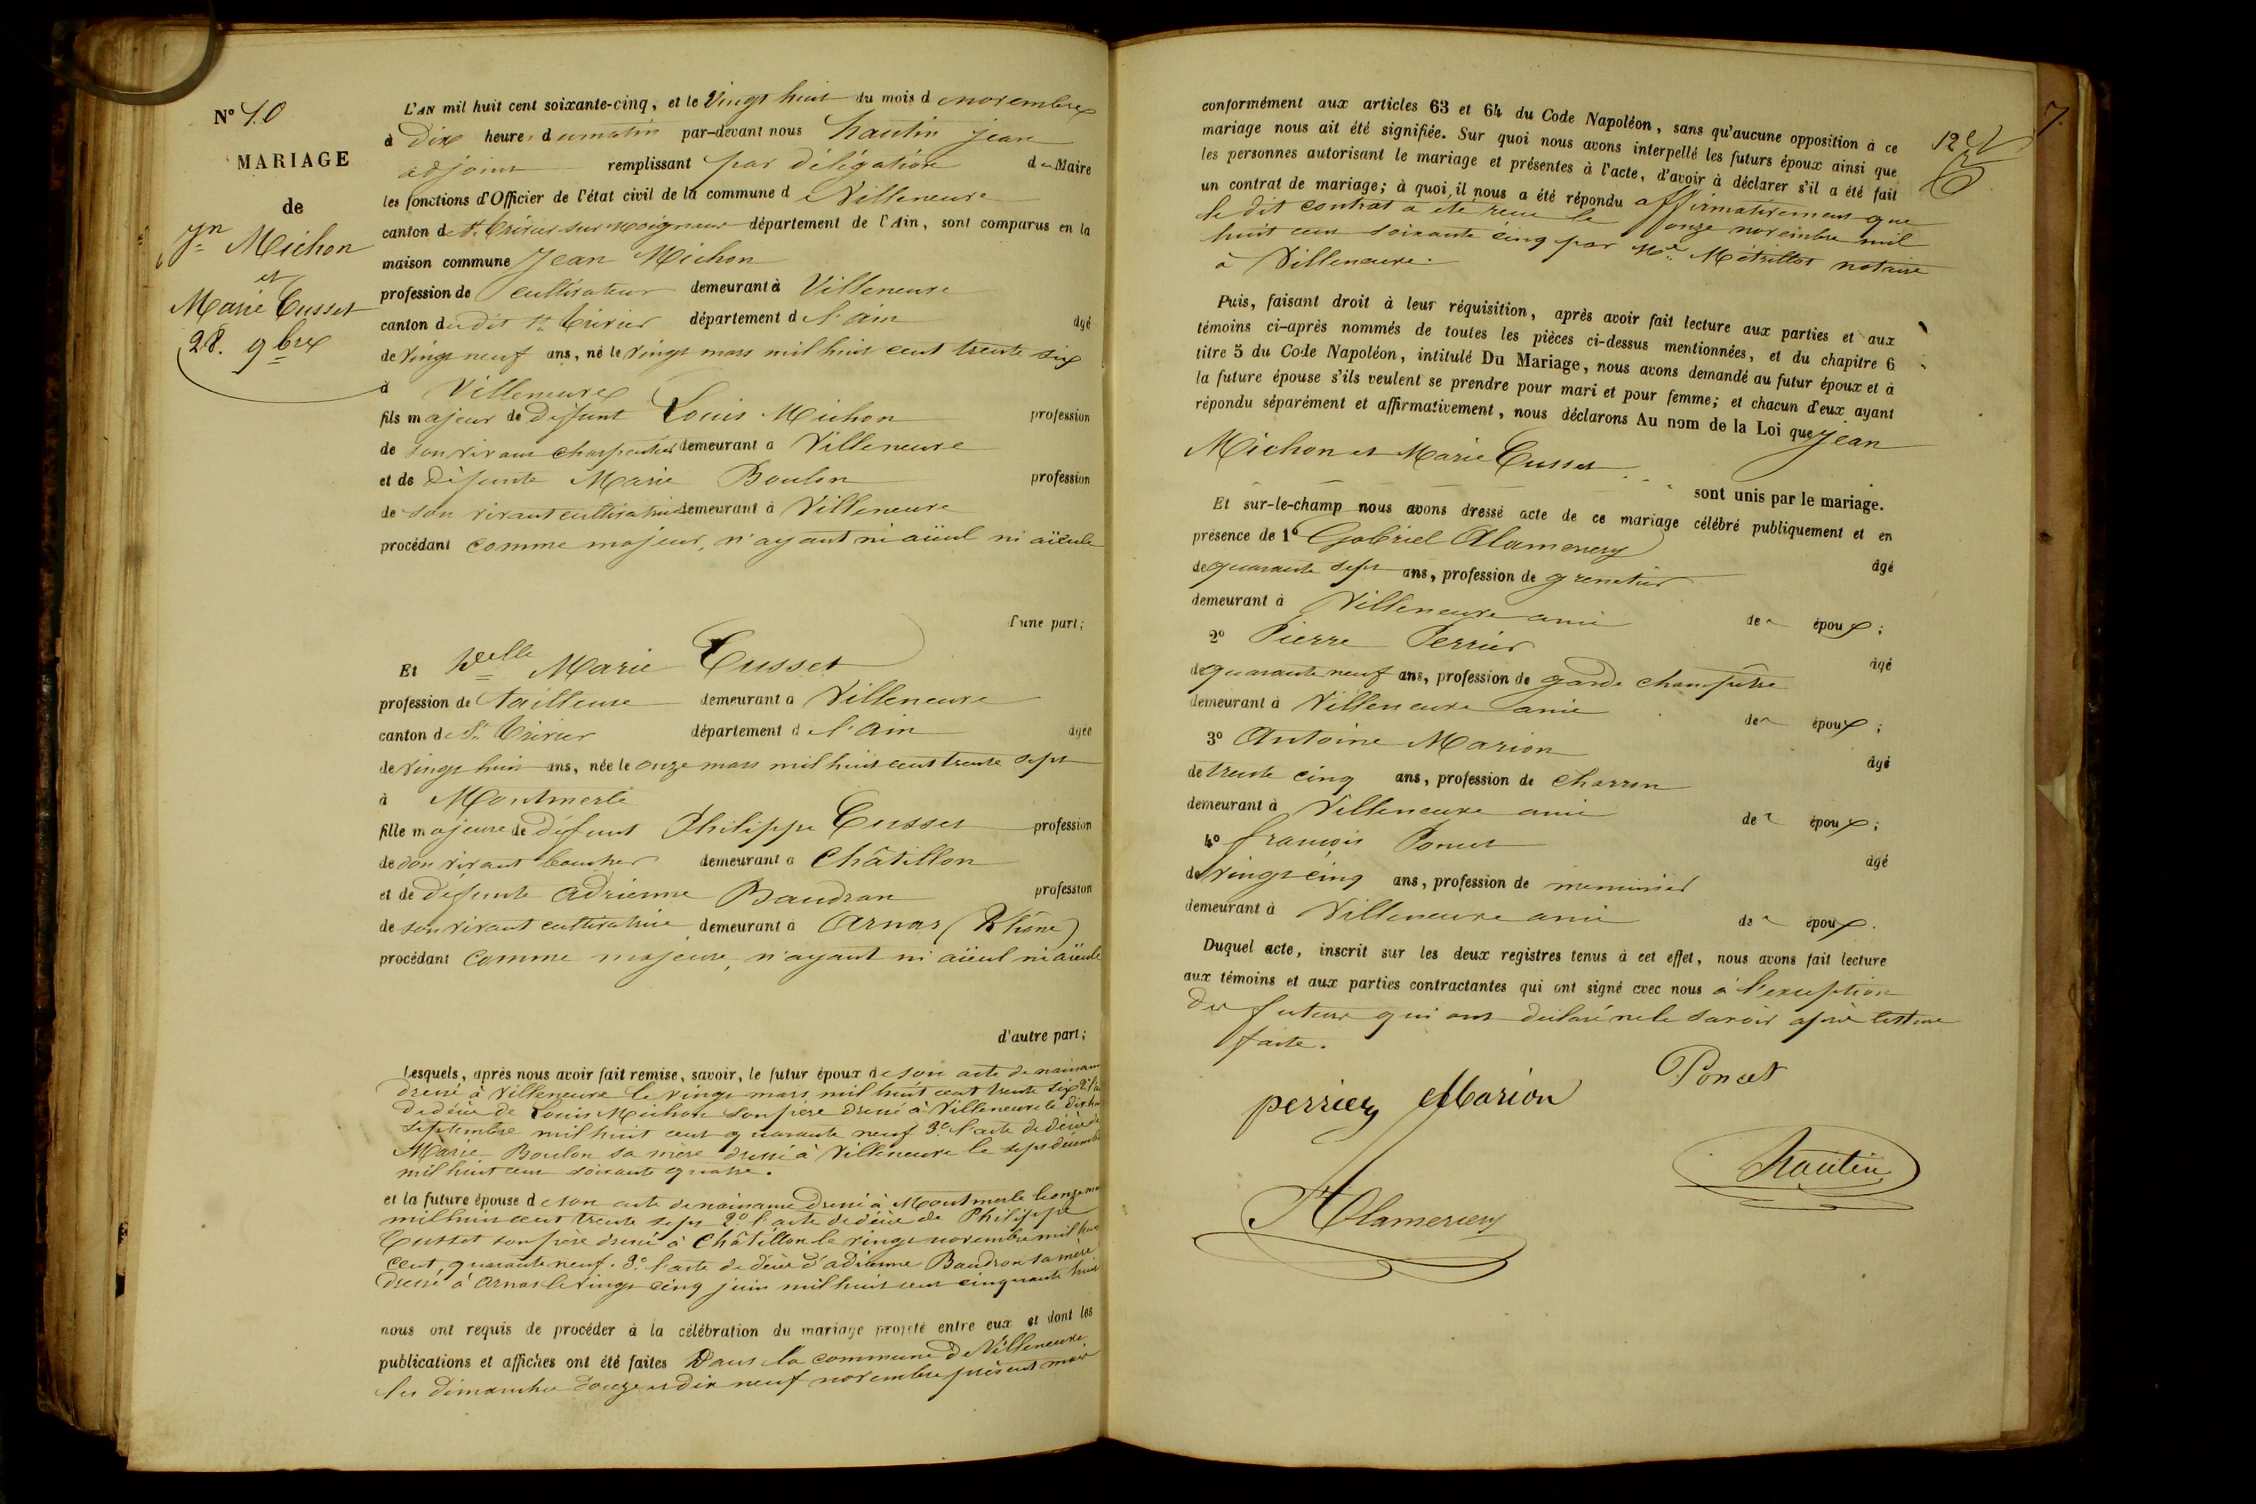 N° 10
MARIAGE
de
Jn Michon
et
Marie Cusset
28. 9bre
L'AN mil huit cent soixante-cinq, et le Vingt huit du mois d e novembre
à Dix heures du matin par-devant nous hautin Jean
adjoint remplissant par délégation du Maire
les fonctions d'Officier de l'état civil de la commune de Villeneuve
canton de St. Trivier sur Moignans département de l'Ain, sont comparus en la
maison commune Jean Michon
profession de cultivateur demeurant à Villeneuve
canton du dit St. Trivier département de l'ain âgé
de Vingt neuf ans, né le vingt mars mil huit cent trente six
à Villeneuve
fils majeur de Défunt Louis Michon profession
de son vivant charpentier demeurant à Villeneuve
et de Défunte Marie Boulon profession
de son vivant cultivatrice demeurant à Villeneuve
procédant comme majeur, n'ayant ni aïeul ni aïeule
d'une part;
Et Delle Marie Cusset
profession de tailleuse demeurant à Villeneuve
canton de St. Trivier département de l'ain âgée
de vingt huit ans, née le onze mars mil huit cent trente sept
à Montmerle
fille majeure de défunt Philippe Cusset profession
de son vivant boucher demeurant à Châtillon
et de défunte adrienne Baudran profession
de son vivant cultivatrice demeurant à Arnas (Rhône)
procédant comme majeure, n'ayant ni aïeul ni aïeule
d'autre part;
Lesquels, après nous avoir fait remise, savoir, le futur époux de son acte de naissance
dressé à Villeneuve le vingt mars mil huit cent trente six 2° l'acte
de décès de Louis Michon son père dressé à Villeneuve le dix huit
septembre mil huit cent quarante neuf 3° l'acte de décès de
Marie Boulon sa mère dressé à Villeneuve le sept décembre
mil huit cent soixante quatre.
et la future épouse de son acte de naissance dressé à Montmerle le onze mars
mil huit cent trente sept 2° l'acte de décès de Philippe
Cusset son père dressé à Châtillon le vingt novembre mil huit
cent quarante neuf. 3° l'acte de décès d'adrienne Baudron sa mère
dressé à Arnas le vingt cinq juin mil huit cent cinquante huit
nous ont requis de procéder à la célébration du mariage projeté entre eux et dont les
publications et affiches ont été faites Dans la commune de Villeneuve
les dimanches douze et dix neuf novembre présent mois
7
12
conformément aux articles 63 et 64 du Code Napoléon, sans qu'aucune opposition à ce
mariage nous ait été signifiée. Sur quoi nous avons interpellé les futurs époux ainsi que
les personnes autorisant le mariage et présentes à l'acte, d'avoir à déclarer s'il a été fait
un contrat de mariage; à quoi, il nous a été répondu affirmativement que
le dit contrat a été reçu le onze novembre mil
huit cent soixante cinq par Me. Métrillot notaire
à Villeneuve.
Puis, faisant droit à leur réquisition, après avoir fait lecture aux parties et aux
témoins ci-après nommés de toutes les pièces ci-dessus mentionnées, et du chapitre 6
titre 5 du Code Napoléon, intitulé Du Mariage, nous avons demandé au futur époux et à
la future épouse s'ils veulent se prendre pour mari et pour femme; et chacun d'eux ayant
répondu séparément et affirmativement, nous déclarons Au nom de la Loi que Jean
Michon et Marie Cusset
sont unis par le mariage.
Et sur-le-champ nous avons dressé acte de ce mariage célébré publiquement et en
présence de 1° Gabriel Alamercery
âgé
de quarante sept ans, profession de grenetier
demeurant à Villeneuve ami des époux;
2° Pierre Perrier
âgé
de quarante neuf ans, profession de garde champêtre
demeurant à Villeneuve ami des époux;
3° Antoine Marion
âgé
de trente cinq ans, profession de charron
demeurant à Villeneuve ami des époux;
4° françois Poncet
âgé
de vingt cinq ans, profession de menuisier
demeurant à Villeneuve ami des époux.
Duquel acte, inscrit sur les deux registres tenus à cet effet, nous avons fait lecture
aux témoins et aux parties contractantes qui ont signé avec nous à l'exception
des futurs qui ont déclaré ne le savoir après lecture
faite.
perrier Marion Poncet
Alamercery hautin